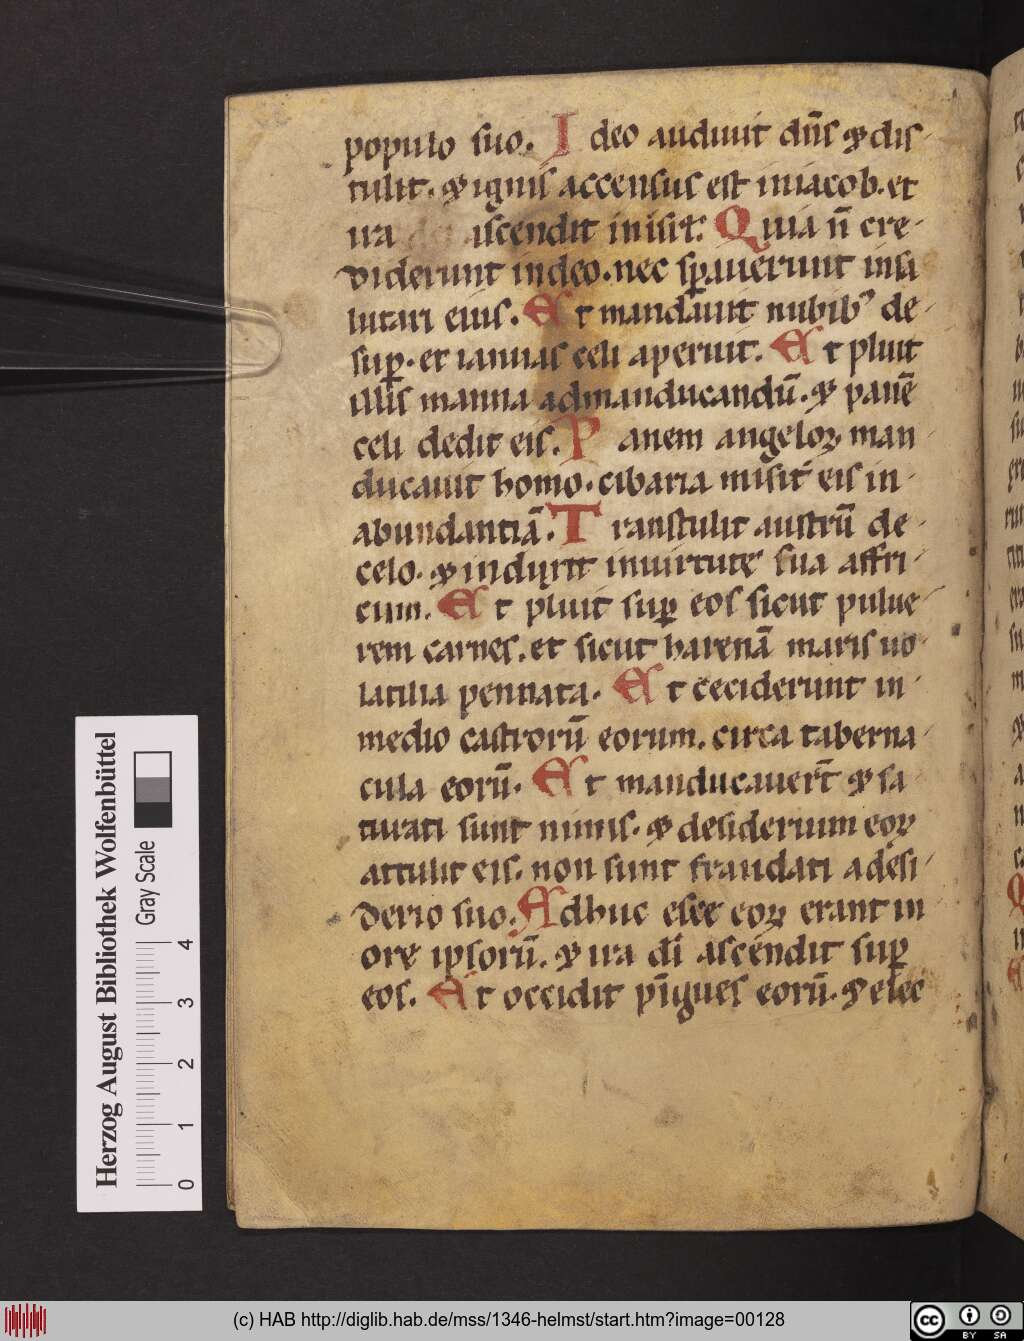 populo suo. Ideo audiuit dn̄s ⁊ dis
tulit. ⁊ ignis accensus est in iacob. et
ira ascendit in isrl̄. Quia n̄ cre-
diderunt in deo. nec sp̱auerunt in sa
lutari eius. Et mandauit nubibꝰ de
sup̱. et ianuas celi aperuit. Et pluit
illis manna ad manducandū. ⁊ panē
celi dedit eis. Panem angeloꝝ man
ducauit homo. cibaria misit eis in
abundantiā. Transtulit austrū de
celo. ⁊ induxit in uirtutę sua affri
cum. Et pluit sup̱ eos sicut pulue
rem carnes. et sicut harenā maris uo
latilia pennata. Et ceciderunt in
medio castrorū eorum. circa taberna
cula eorū. Et manducauer̄t ⁊ sa
turati sunt nimis. ⁊ desiderium eoꝝ
attulit eis. non sunt fraudati a desi
derio suo. Adhuc escę eoꝝ erant in
orę ipsorū. ⁊ ira dī ascendit sup̱
eos. Et occidit pīgues eorū. ⁊ elec
Herzog August Bibliothek Wolfenbüttel
Gray Scale
0 1 2 3 4
(c) HAB http://diglib.hab.de/mss/1346-helmst/start.htm?image=00128
cc BY SA